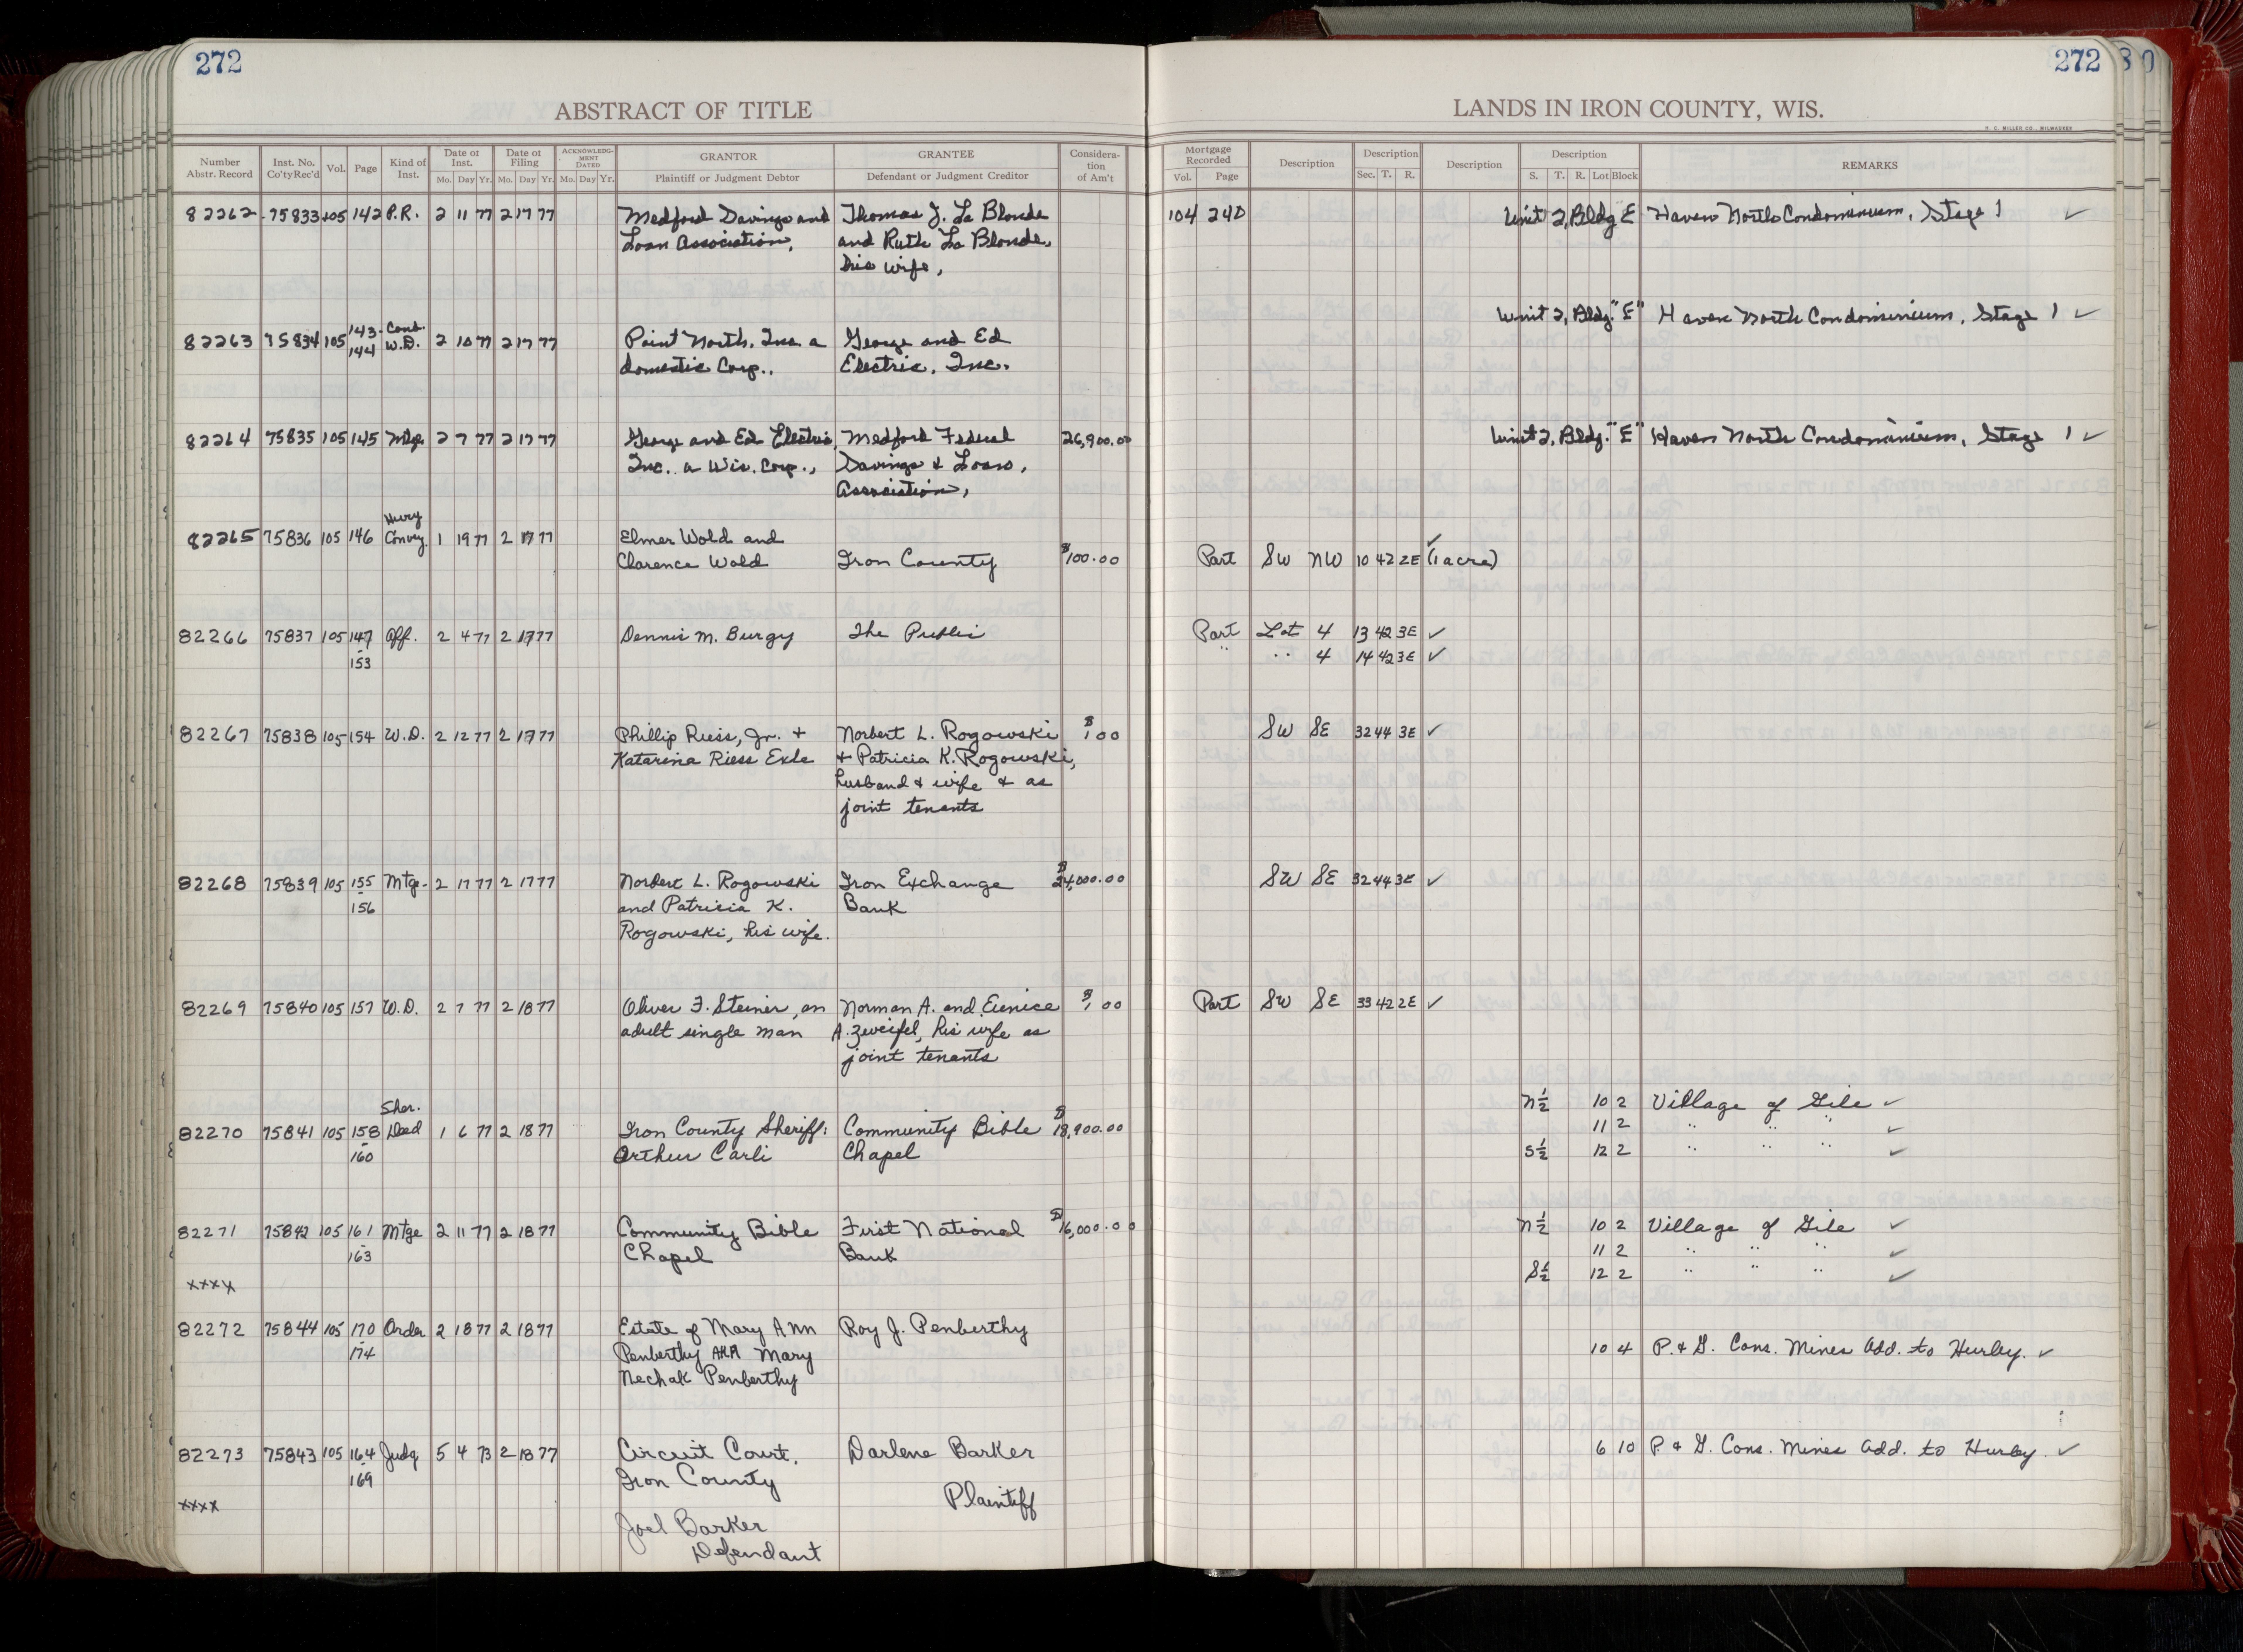 272
272
30
ABSTRACT OF TITLE
LANDS IN IRON COUNTY, WIS.
H. C. MILLER CO., MILWAUKEE
Number Abstr. Record Inst. No. Co'ty Rec'd Vol. Page Kind of Inst. Date of Inst. Mo. Day Yr. Date of Filing Mo. Day Yr. ACKNOWLEDGMENT DATED Mo. Day Yr. GRANTOR Plaintiff or Judgment Debtor GRANTEE Defendant or Judgment Creditor Consideration of Am't Mortgage Recorded Vol. Page Description Description Sec. T. R. Description Description S. T. R. Lot Block REMARKS
82262 75833 105 142 P.R. 2 11 77 2 17 77 Medford Savings and Thomas J. La Blonde 104 240 Unit 2, Bldg E Haven North Condominium, Stage 1 ✓
Loan Association, and Ruth La Blonde,
his wife,
Unit 2, Bldg. "E" Haven North Condominium, Stage 1 ✓
82263 75834 105 143- Cond. 2 10 77 2 17 77 Point North, Inc. a George and Ed
144 W.D. domestic Corp., Electric, Inc.
82264 75835 105 145 Mtge. 2 7 77 2 17 77 George and Ed Electric, Medford Federal 26,900.00 Unit 2, Bldg. "E" Haven North Condominium, Stage 1 ✓
Inc. a Wis. Corp., Savings & Loan,
Association,
Hwy
82265 75836 105 146 Convey. 1 19 77 2 17 77 Elmer Wold and ✓
Clarence Wold Iron County $100.00 Part SW NW 10 42 2E (1 acre)
82266 75837 105 147 Aff. 2 4 77 2 17 77 Dennis M. Burgy The Public Part Lot 4 13 42 3E ✓
- 153 " " 4 14 42 3E ✓
82267 75838 105 154 W.D. 2 12 77 2 17 77 Phillip Riess, Jr. + Norbert L. Rogowski $1.00 SW SE 32 44 3E ✓
Katarina Riess Exle + Patricia K. Rogowski,
husband & wife & as
joint tenants
82268 75839 105 155 Mtge. 2 17 77 2 17 77 Norbert L. Rogowski Iron Exchange $24,000.00 SW SE 32 44 3E ✓
- 156 and Patricia K. Bank
Rogowski, his wife.
82269 75840 105 157 W.D. 2 7 77 2 18 77 Oliver F. Steiner, an Norman A. and Eunice $1.00 Part SW SE 33 42 2E ✓
adult single man A. Zweifel, his wife as
joint tenants
N½ 10 2 Village of Gile ✓
Sher. 11 2 " " " ✓
82270 75841 105 158 Deed 1 6 77 2 18 77 Iron County Sheriff: Community Bible $18,900.00
- 160 Arthur Carli Chapel S½ 12 2 " " " ✓
82271 75842 105 161 Mtge 2 11 77 2 18 77 Community Bible First National $16,000.00 N½ 10 2 Village of Gile ✓
- 163 Chapel Bank 11 2 " " " ✓
xxxx S½ 12 2 " " " ✓
82272 75844 105 170 Order 2 18 77 2 18 77 Estate of Mary Ann Roy J. Penberthy
- 174 Penberthy AKA Mary 10 4 P. & G. Cons. Mines Add. to Hurley. ✓
Nechak Penberthy
82273 75843 105 164 Judg 5 4 73 2 18 77 Circuit Court, Darlene Barker 6 10 P & G. Cons. Mines Add. to Hurley. ✓
- 169 Iron County
xxxx Plaintiff
Joel Barker
Defendant